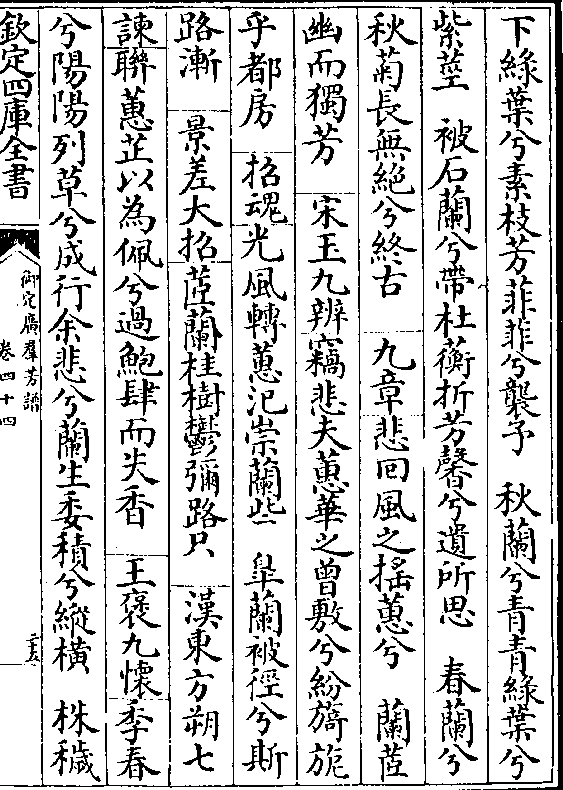 下綠葉兮素枝芳菲菲兮襲予　秋蘭兮青青綠葉兮
紫莖　被石蘭兮帶杜蘅折芳馨兮遺所思　春蘭兮
秋菊長無絶兮終古　九章悲回風之揺蕙兮　蘭茝
幽而獨芳　宋玉九辨竊悲夫蕙華之曾敷兮紛旖旎
乎都房　招魂光風轉蕙汜崇蘭些　臯蘭被徑兮斯
路漸　景差大招茝蘭桂樹鬱彌路只　漢東方朔七
諫聯蕙芷以為佩兮過鮑肆而失香　王褒九懷季春
兮陽陽列草兮成行余悲兮蘭生委積兮縱橫　株穢
欽定四庫全書
御定廣羣芳譜
卷四十四
二五